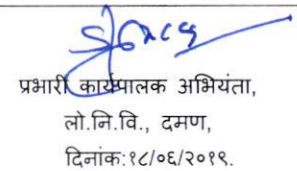 प्रभारी कार्यपालक अभियंता,
लो.नि.वि., दमण,
दिनांक:१८/०६/२०१९.